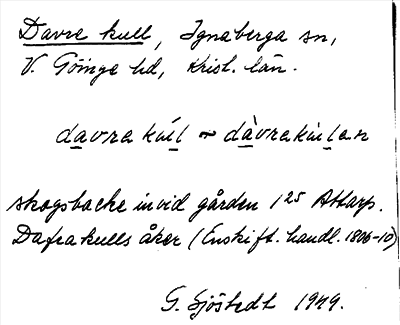 Davre kull, Ignaberga sn,
V. Göinge hd, Krist. län.
davra kúl ~ dàvrakùlen
skogsbacke invid gården 1²⁵ Attarp.
Dafrakulls åker (Enskift. handl. 1806-10)
G. Sjöstedt 1949.